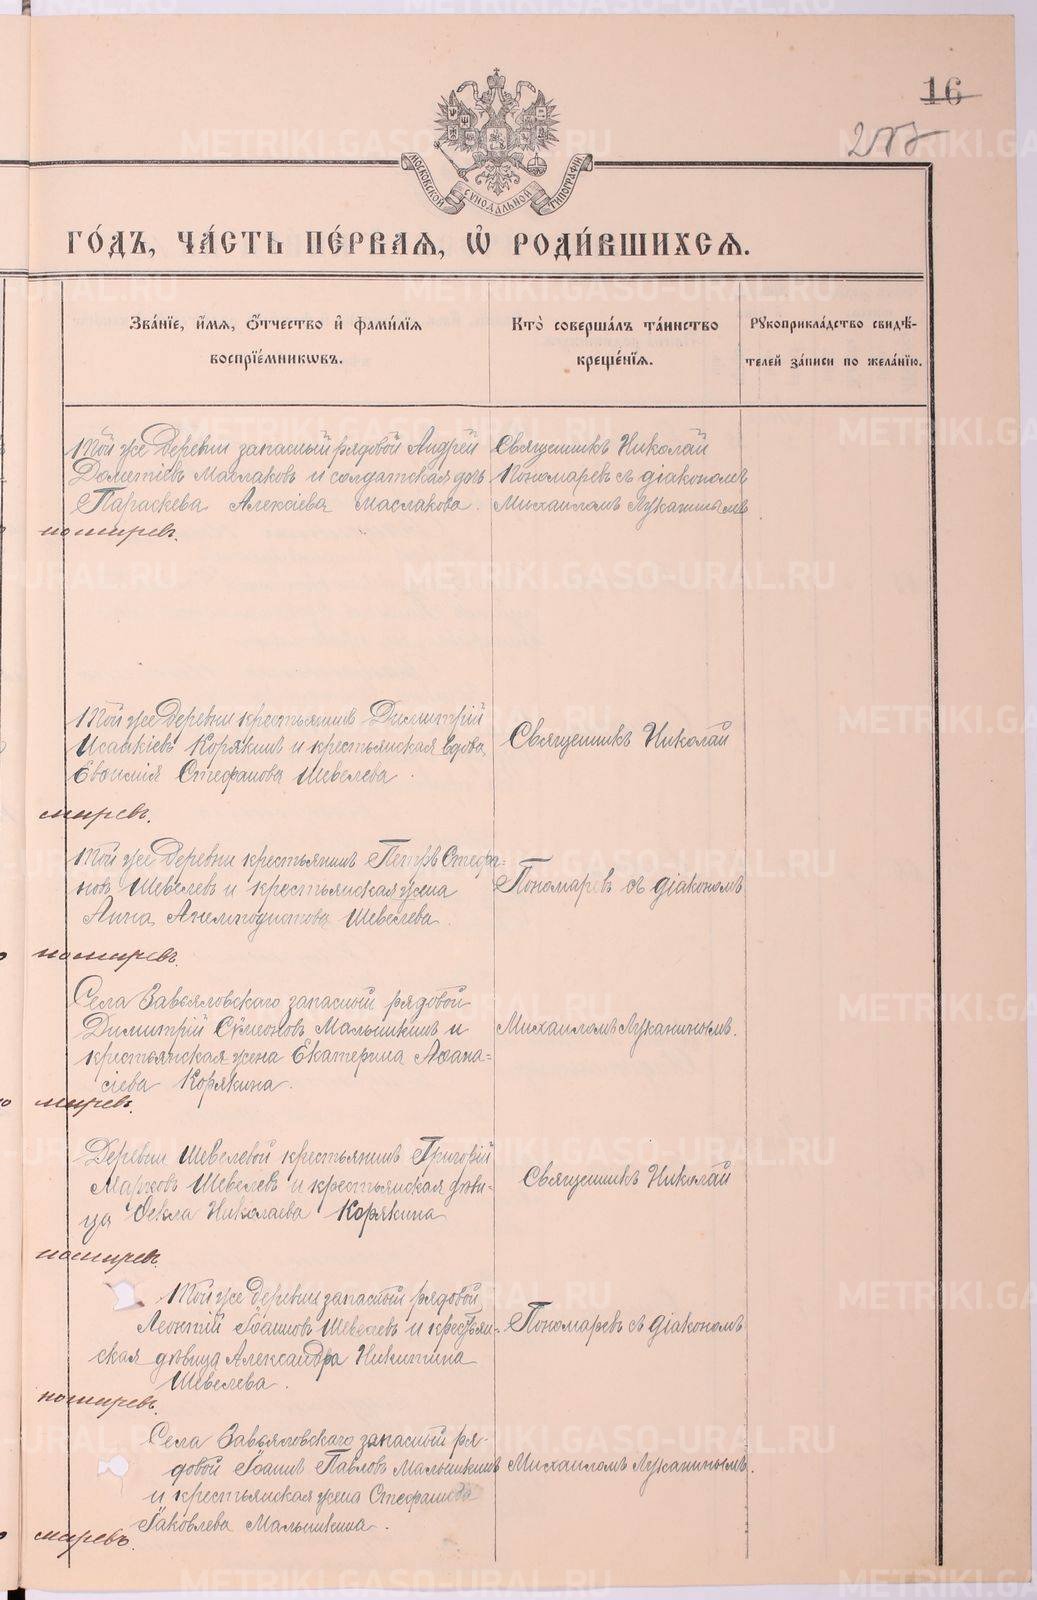 16
МОСКОВСКОЙ СУНОДАЛЬНОЙ ТИПОГРАФІИ
ГО́ДЪ, ЧА́СТЬ ПЕ́РВАѦ, Ѽ РОДИ́ВШИХСѦ.
Зва́нїе, и́мѧ, ѻ҆́тчество и҆ фами́лїѧ
воспрїе́мникѡвъ.
Кто̀ соверша́лъ та́инство
креще́нїѧ.
Рꙋкоприкла́дство свидѣ́-
телей за́писи по жела́нїю.
Той же деревни запасный рядовой Андрей
Дометіевъ Маслаковъ и солдатская дочь
Параскева Алексіева Маслакова.
Священникъ Николай
Пономаревъ съ діакономъ
Михаиломъ Лукан
Той же деревни крестьянинъ Димитрій
Исаакіевъ Корякинъ и крестьянская вдова
Евѳимія Стефанова Шевелева.
Священникъ Николай
Той же деревни крестьянинъ Петръ Стефа-
новъ Шевелевъ и крестьянская жена
Анна Анемподистова Шевелева.
Пономаревъ съ діакономъ
Села Завьяловскаго запасный рядовой
Димитрій Сѵмеоновъ Малышкинъ и
крестьянская жена Екатерина Аѳана-
сіева Корякина.
Михаиломъ Луканинымъ.
Деревни Шевелевой крестьянинъ Григорій
Марковъ Шевелевъ и крестьянская дѣви-
ца Ѳекла Николаева Корякина
Священникъ Николай
Той же деревни запасный рядовой
Леонтій Іоанновъ Шевелевъ и крестьян-
ская дѣвица Александра Никитина
Шевелева.
Пономаревъ съ діакономъ
Села Завьяловскаго запасный ря-
довой Іоаннъ Павловъ Малышкинъ
и крестьянская жена Стефанида
Іаковлева Малышкина.
Михаиломъ Луканинымъ.
METRIKI.GASO-URAL.RU